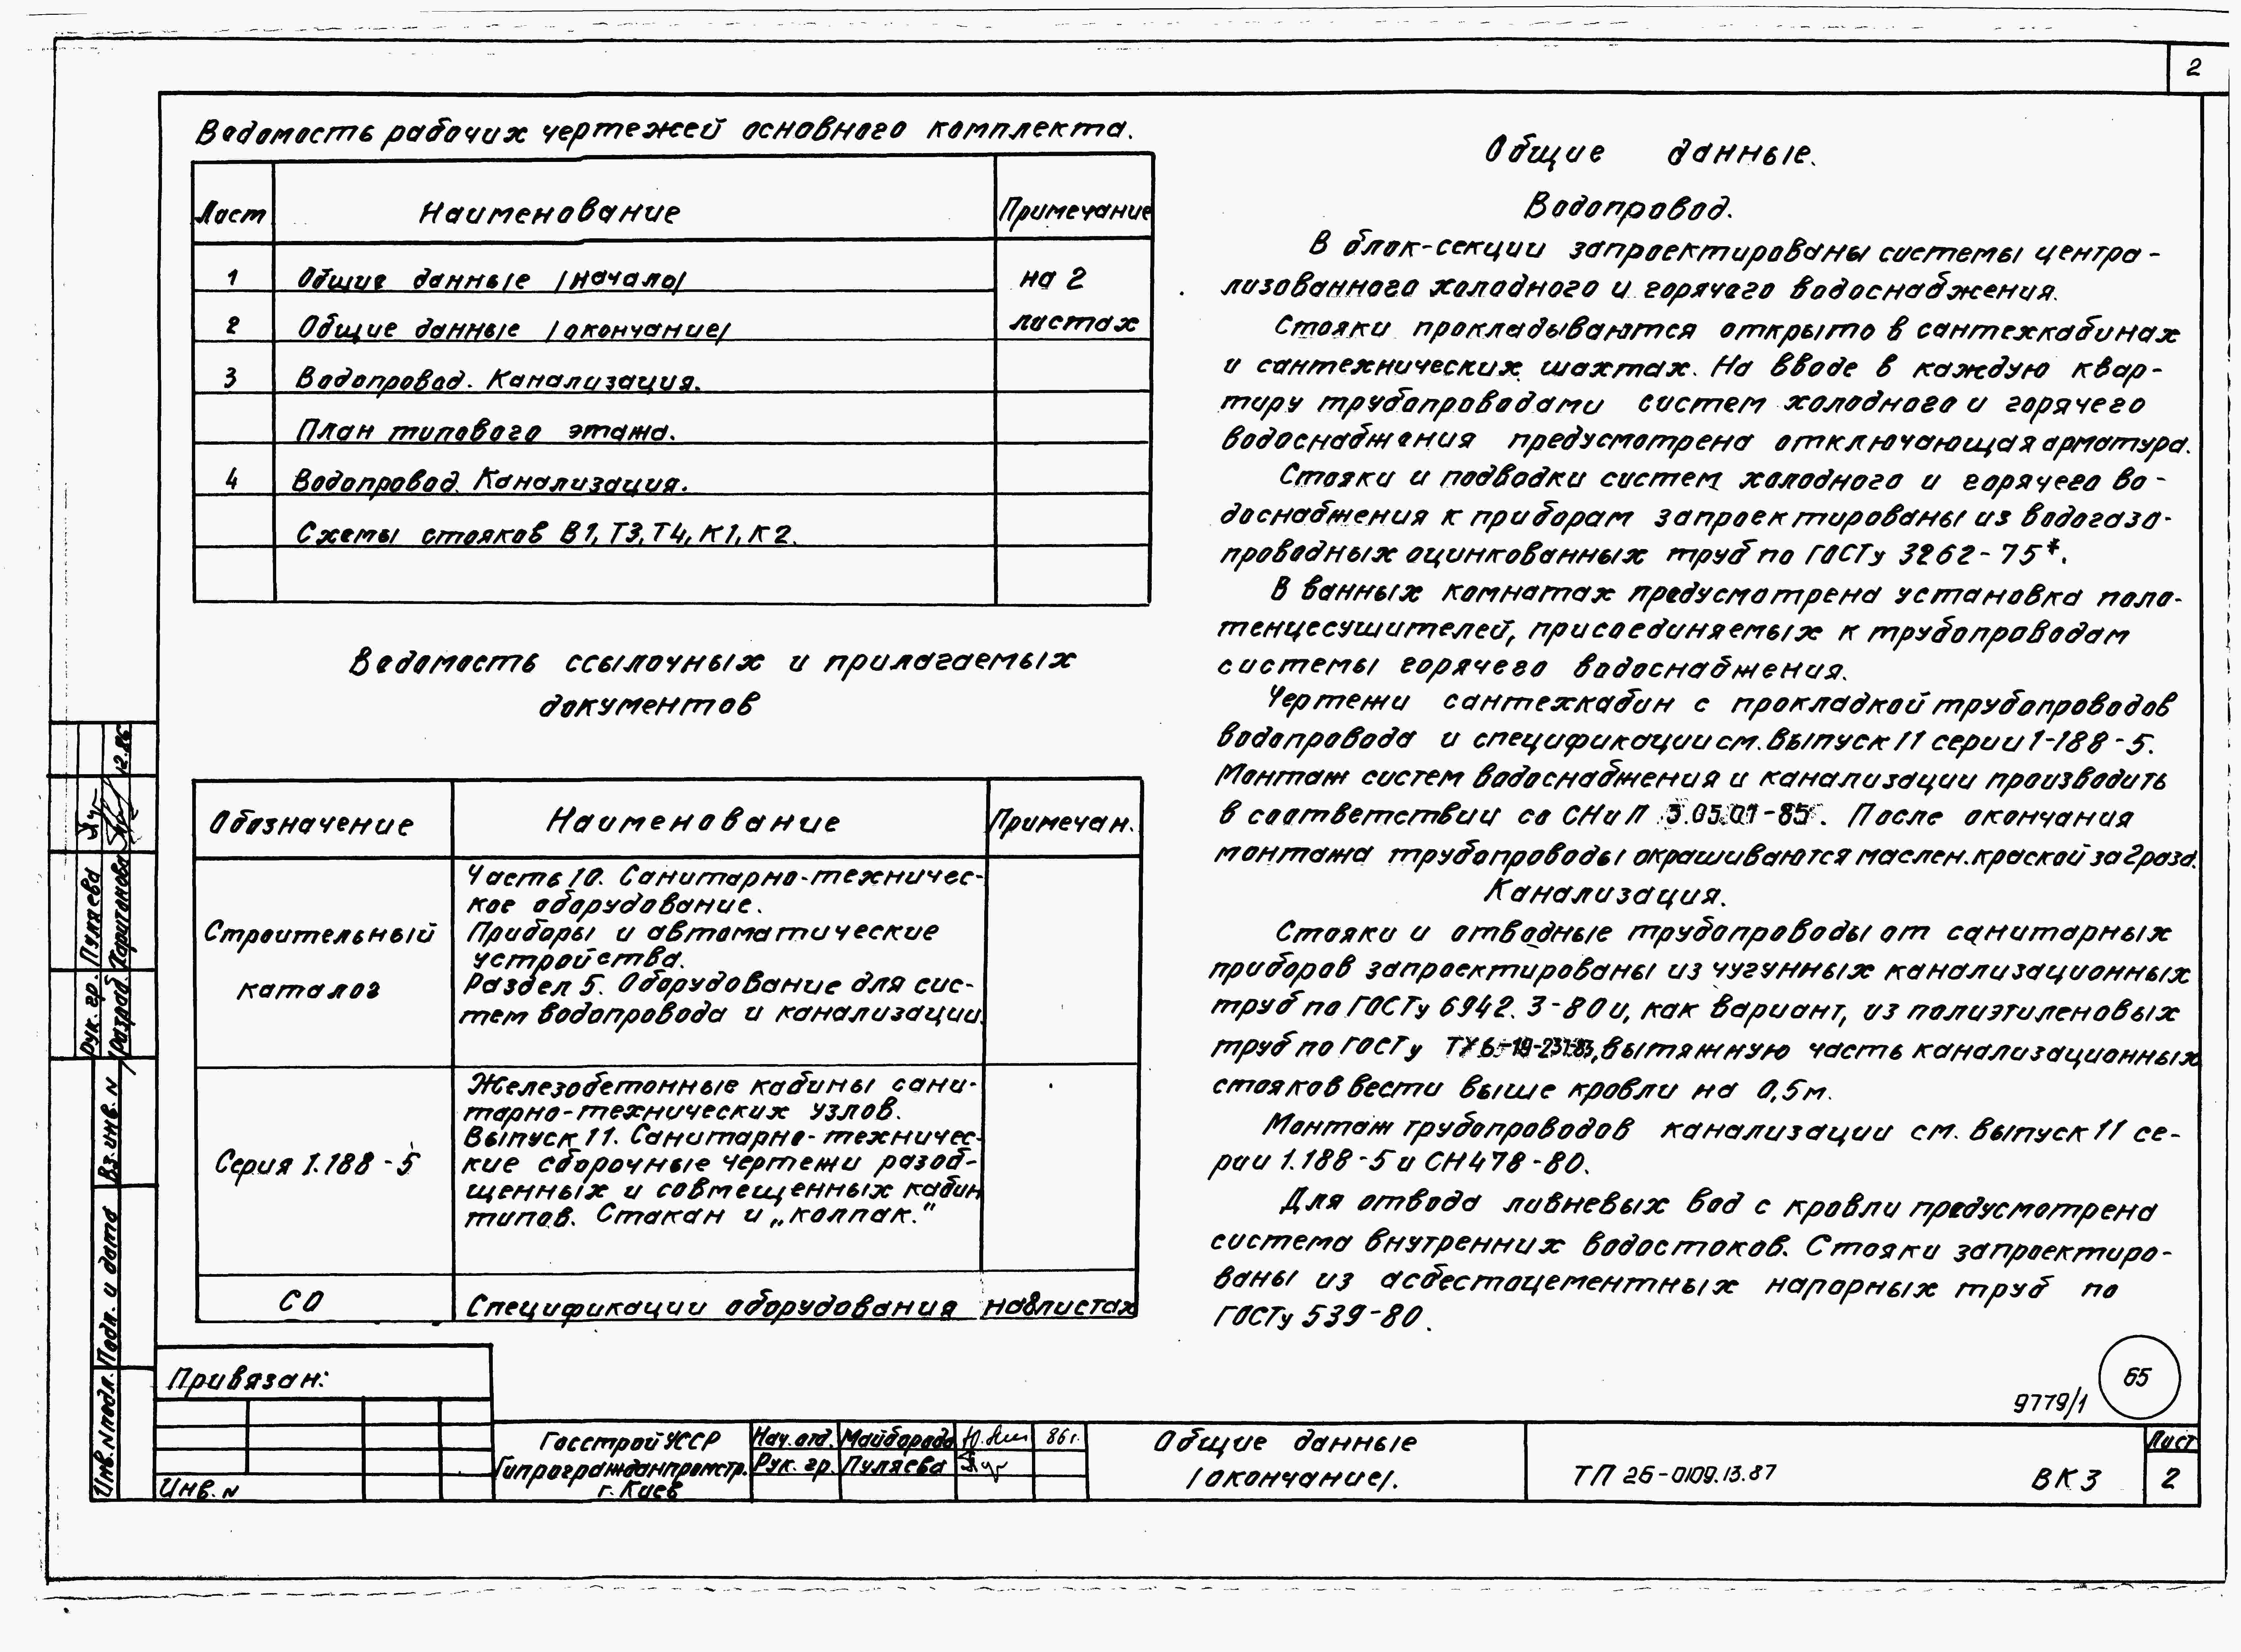 2
Ведомость рабочих чертежей основного комплекта.
Лист Наименование Примечание
1 Общие данные /начало/ на 2
2 Общие данные /окончание/ листах
3 Водопровод. Канализация.
План типового этажа.
4 Водопровод. Канализация.
Схемы стояков В1, Т3, Т4, К1, К2.
Ведомость ссылочных и прилагаемых
документов
Обозначение Наименование Примечан.
Строительный
каталог
Часть 10. Санитарно-техничес-
кое оборудование.
Приборы и автоматические
устройства.
Раздел 5. Оборудование для сис-
тем водопровода и канализации.
Серия 1.188-5
Железобетонные кабины сани-
тарно-технических узлов.
Выпуск 11. Санитарно-техничес-
кие сборочные чертежи разоб-
щенных и совмещенных кабин
типов. Стакан и „колпак."
СО Спецификации оборудования на 8 листах
Общие данные.
Водопровод.
В блок-секции запроектированы системы центра-
лизованного холодного и горячего водоснабжения.
Стояки прокладываются открыто в сантехкабинах
и сантехнических шахтах. На вводе в каждую квар-
тиру трубопроводами систем холодного и горячего
водоснабжения предусмотрена отключающая арматура.
Стояки и подводки систем холодного и горячего во-
доснабжения к приборам запроектированы из водогазо-
проводных оцинкованных труб по ГОСТу 3262-75*.
В ванных комнатах предусмотрена установка поло-
тенцесушителей, присоединяемых к трубопроводам
системы горячего водоснабжения.
Чертежи сантехкабин с прокладкой трубопроводов
водопровода и спецификации см. выпуск 11 серии 1-188-5.
Монтаж систем водоснабжения и канализации производить
в соответствии со СНиП 3.05.01-85. После окончания
монтажа трубопроводы окрашиваются маслен. краской за 2 раза.
Канализация.
Стояки и отводные трубопроводы от санитарных
приборов запроектированы из чугунных канализационных
труб по ГОСТу 6942.3-80 и, как вариант, из полиэтиленовых
труб по ГОСТу ТУ6-19-231-83, вытяжную часть канализационных
стояков вести выше кровли на 0,5м.
Монтаж трубопроводов канализации см. выпуск 11 се-
рии 1.188-5 и СН478-80.
Для отвода ливневых вод с кровли предусмотрена
система внутренних водостоков. Стояки запроектиро-
ваны из асбестоцементных напорных труб по
ГОСТу 539-80.
65
9779/1
Рук. гр. Пуляева
Разраб. Харитонова 12.86
Вз. инв. N
Подп. и дата
Инв. N подл.
Привязан:
Инв. N
Госстрой УССР
Гипрогражданпромстр.
г. Киев
Нач. отд. Майборода 86 г.
Рук. гр. Пуляева
Общие данные
/окончание/.
ТП 26-0109.13.87 ВК3
Лист
2